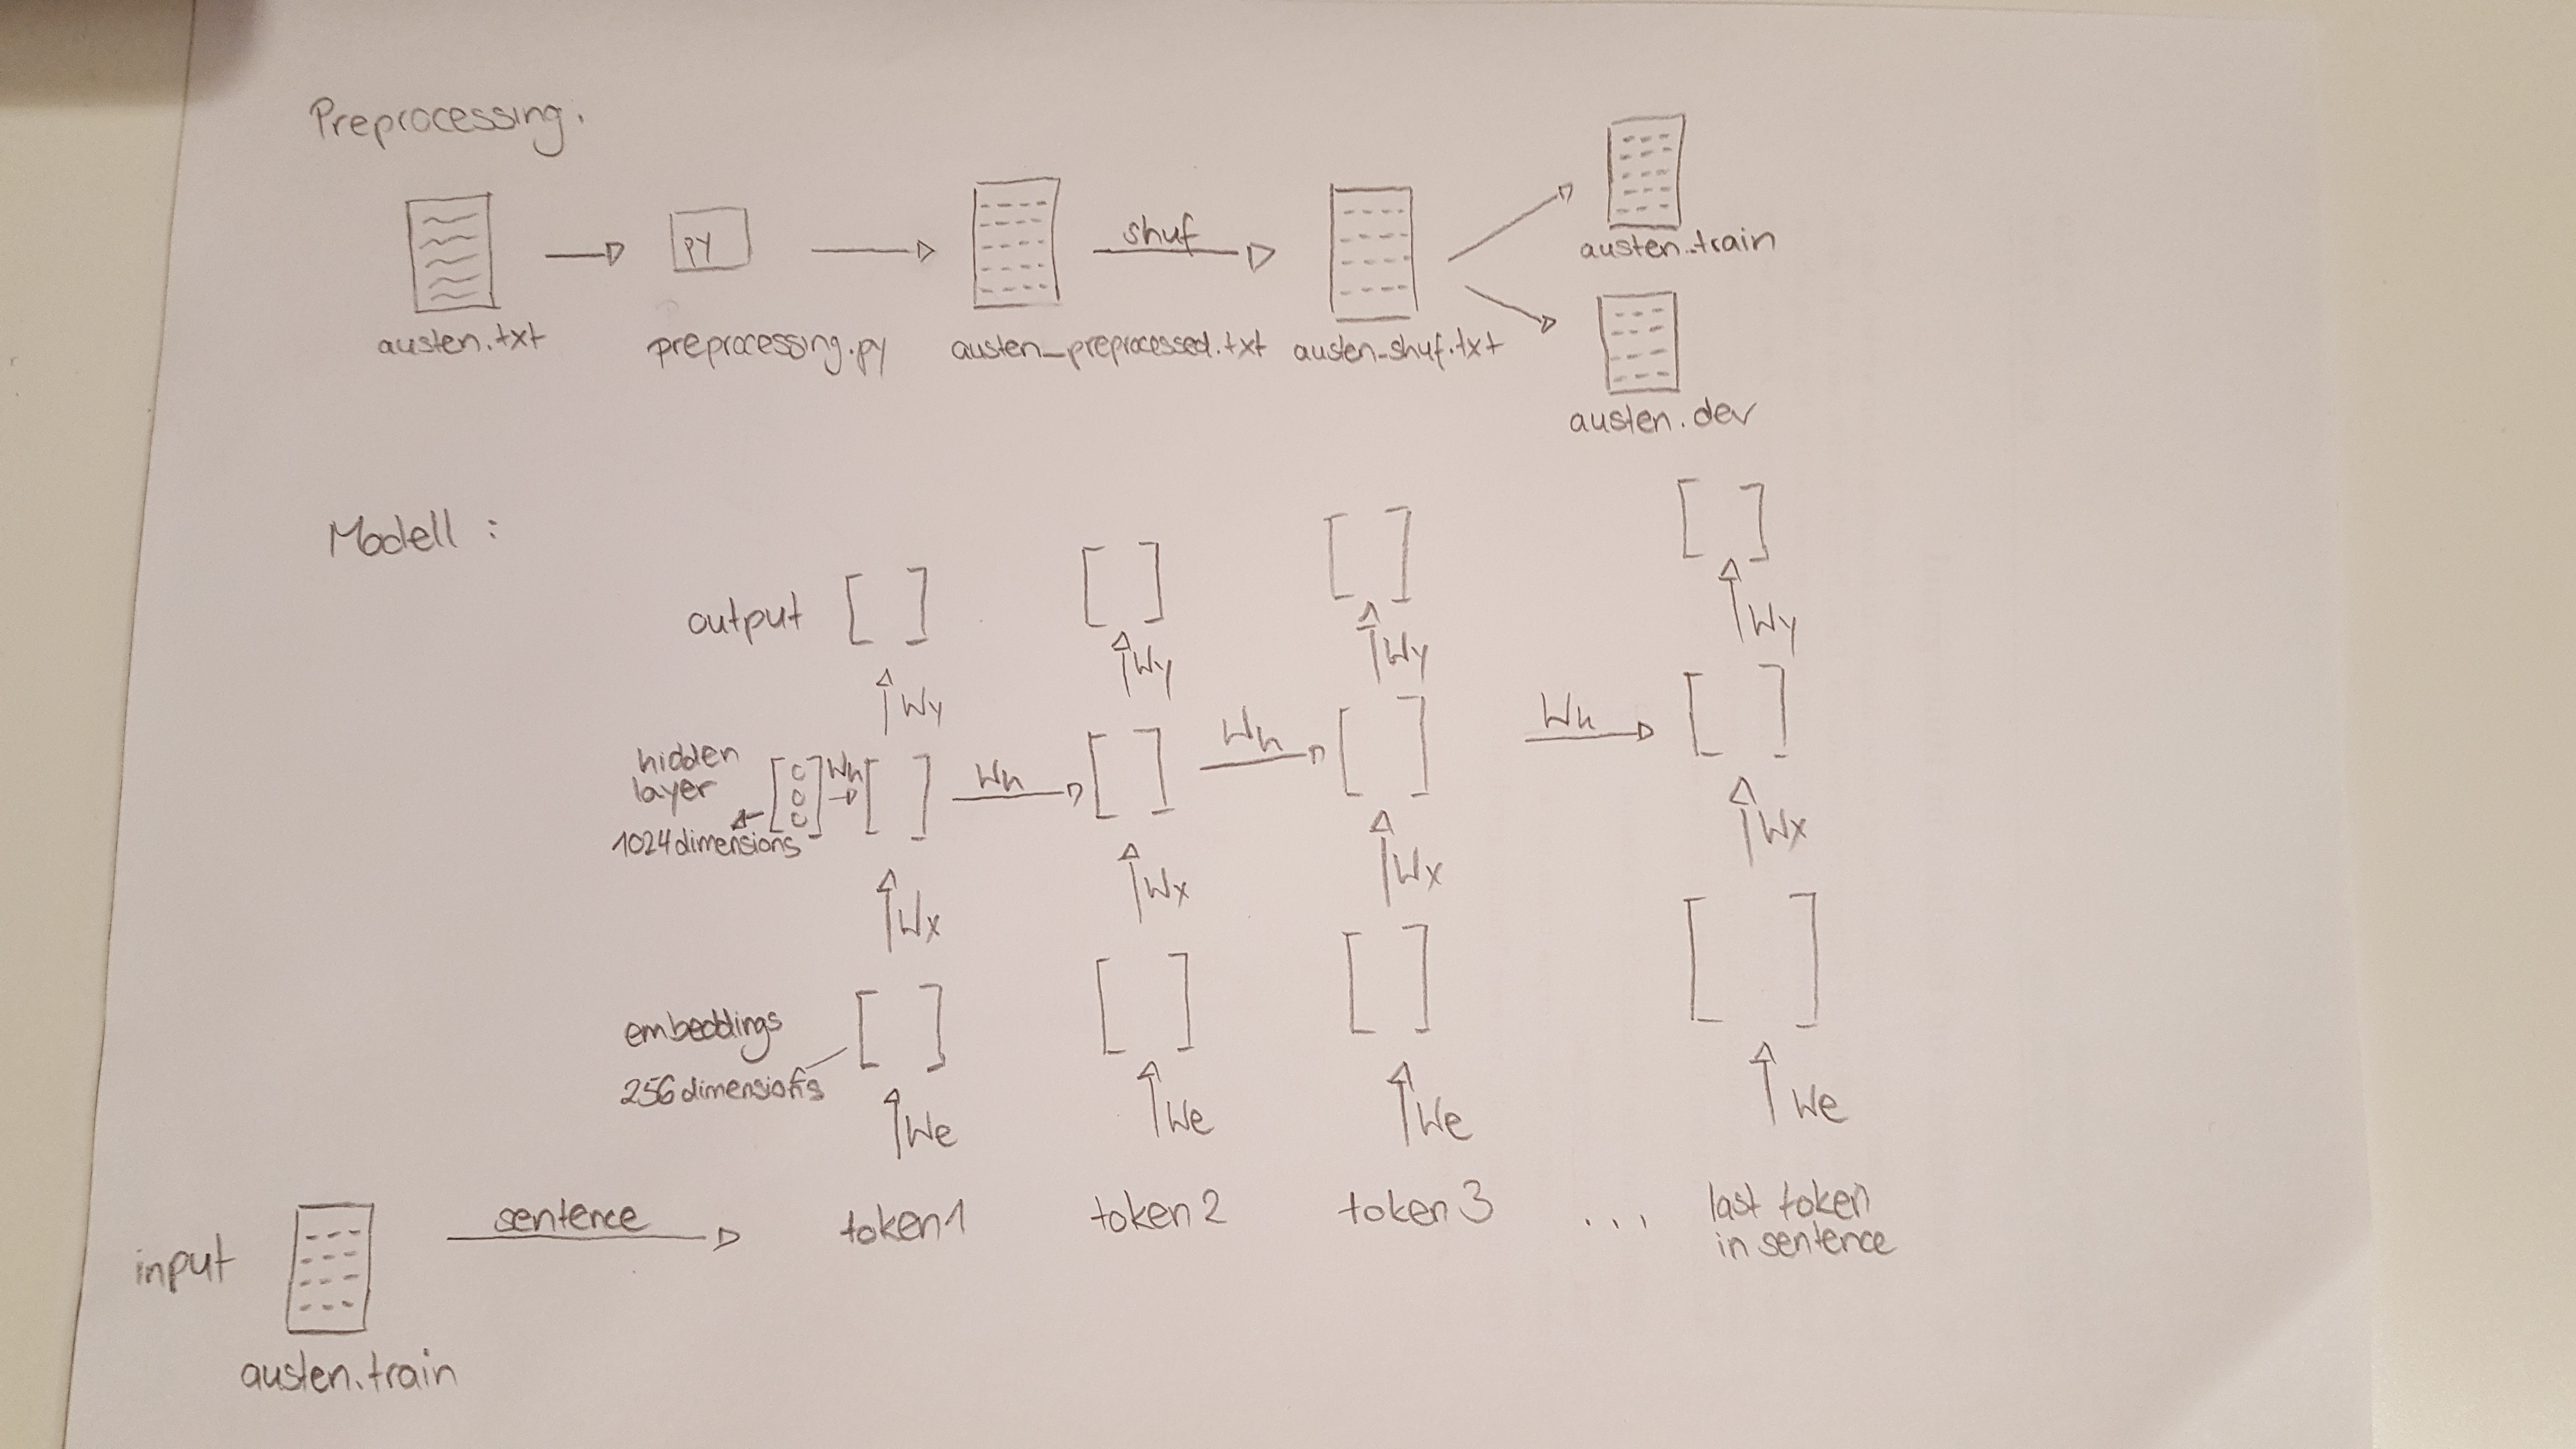 Preprocessing.
py
shuf
austen.txt
preprocessing.py
austen_preprocessed.txt
austen-shuf.txt
austen.train
austen.dev
Modell :
output
Wy
Wy
Wy
Wy
hidden
layer
1024 dimensions
Wh
Wh
Wh
Wh
Wx
Wx
Wx
Wx
embeddings
256 dimensions
We
We
We
We
input
sentence
token1
token 2
token 3
...
last token
in sentence
austen.train